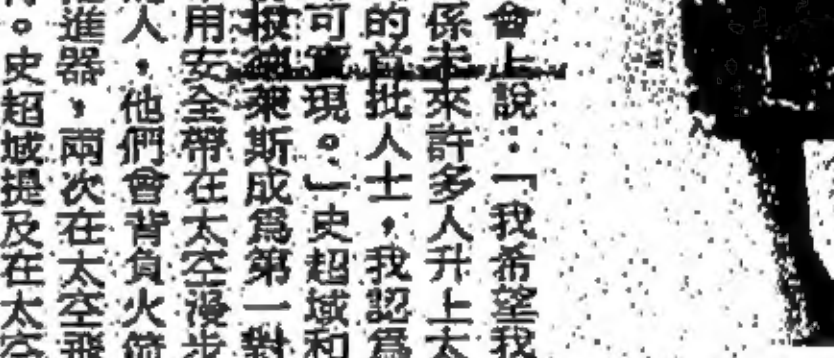 會上說：「我希望我
係未來許多人升上太
的首批人士，我認爲
可實現。」史超域和
萊斯成爲第一對
用安全帶在太空漫步
人，他們會背負火箭
進器，兩次在太空飛
。史超域提及在太空